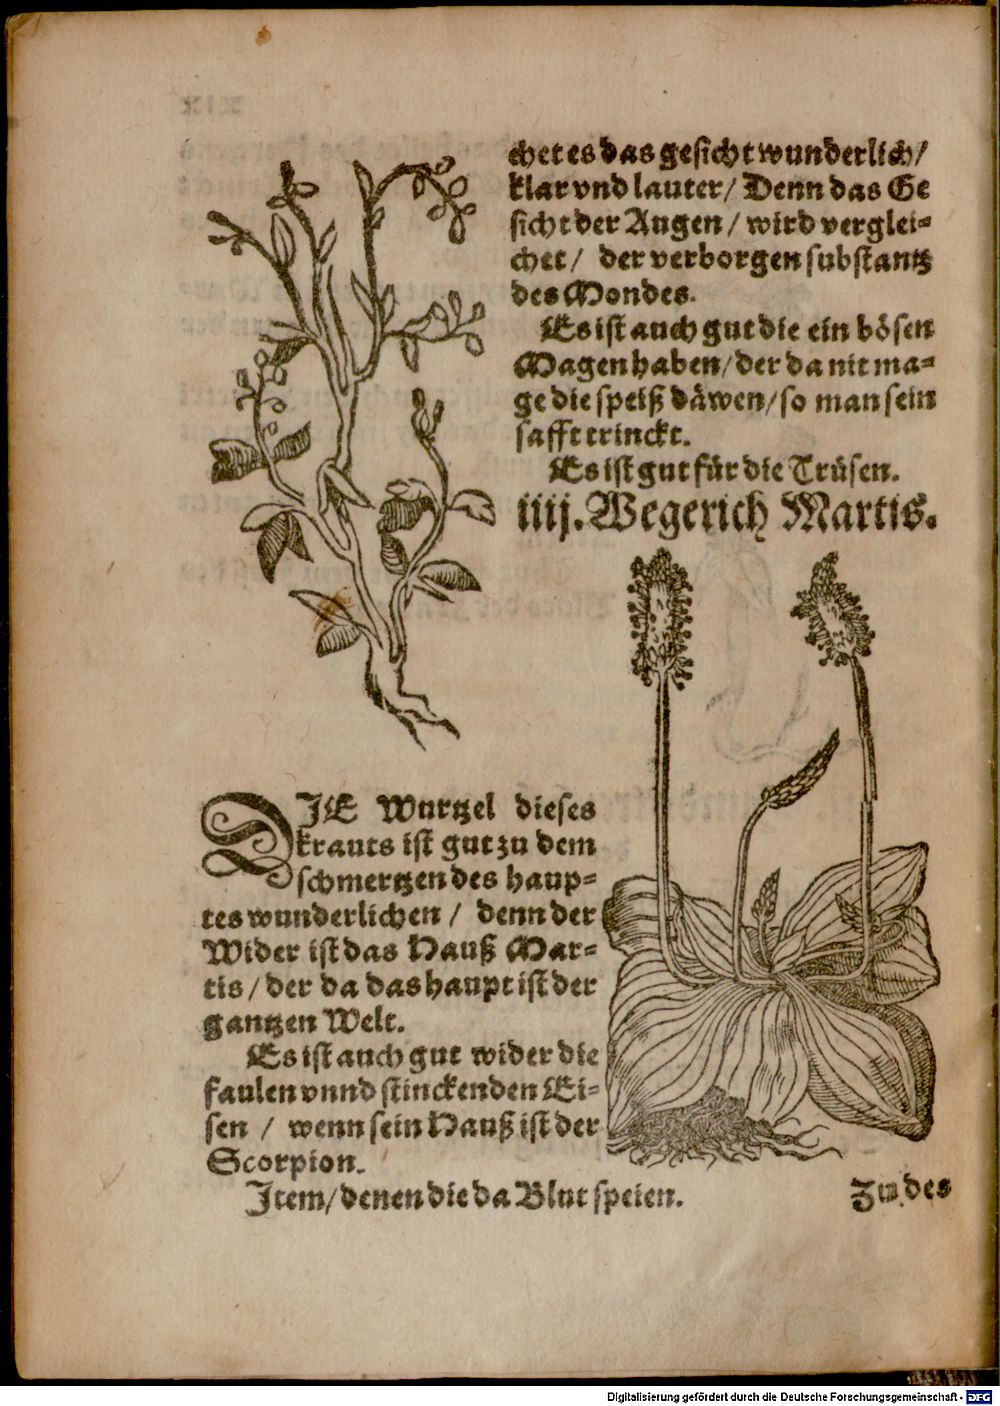 chet es das gesicht wunderlich/
klar vnd lauter/ Denn das Ge
sicht der Augen/ wird verglei-
chet/ der verborgen substantz
des Mondes.
Es ist auch gut die ein bösen
Magen haben/ der da nit ma-
ge die speiß däwen/ so man sein
safft trinckt.
Es ist gut für die Trüsen.
iiij. Wegerich Martis.
DJE Wurtzel dieses
krauts ist gut zu dem
schmertzen des haup-
tes wunderlichen/ denn der
Wider ist das Hauß Mar-
tis/ der da das haupt ist der
gantzen Welt.
Es ist auch gut wider die
faulen vnnd stinckenden Ei-
sen/ wenn sein Hauß ist der
Scorpion.
Jtem/ denen die da Blut speien.
Zu des
Digitalisierung gefördert durch die Deutsche Forschungsgemeinschaft - DFG